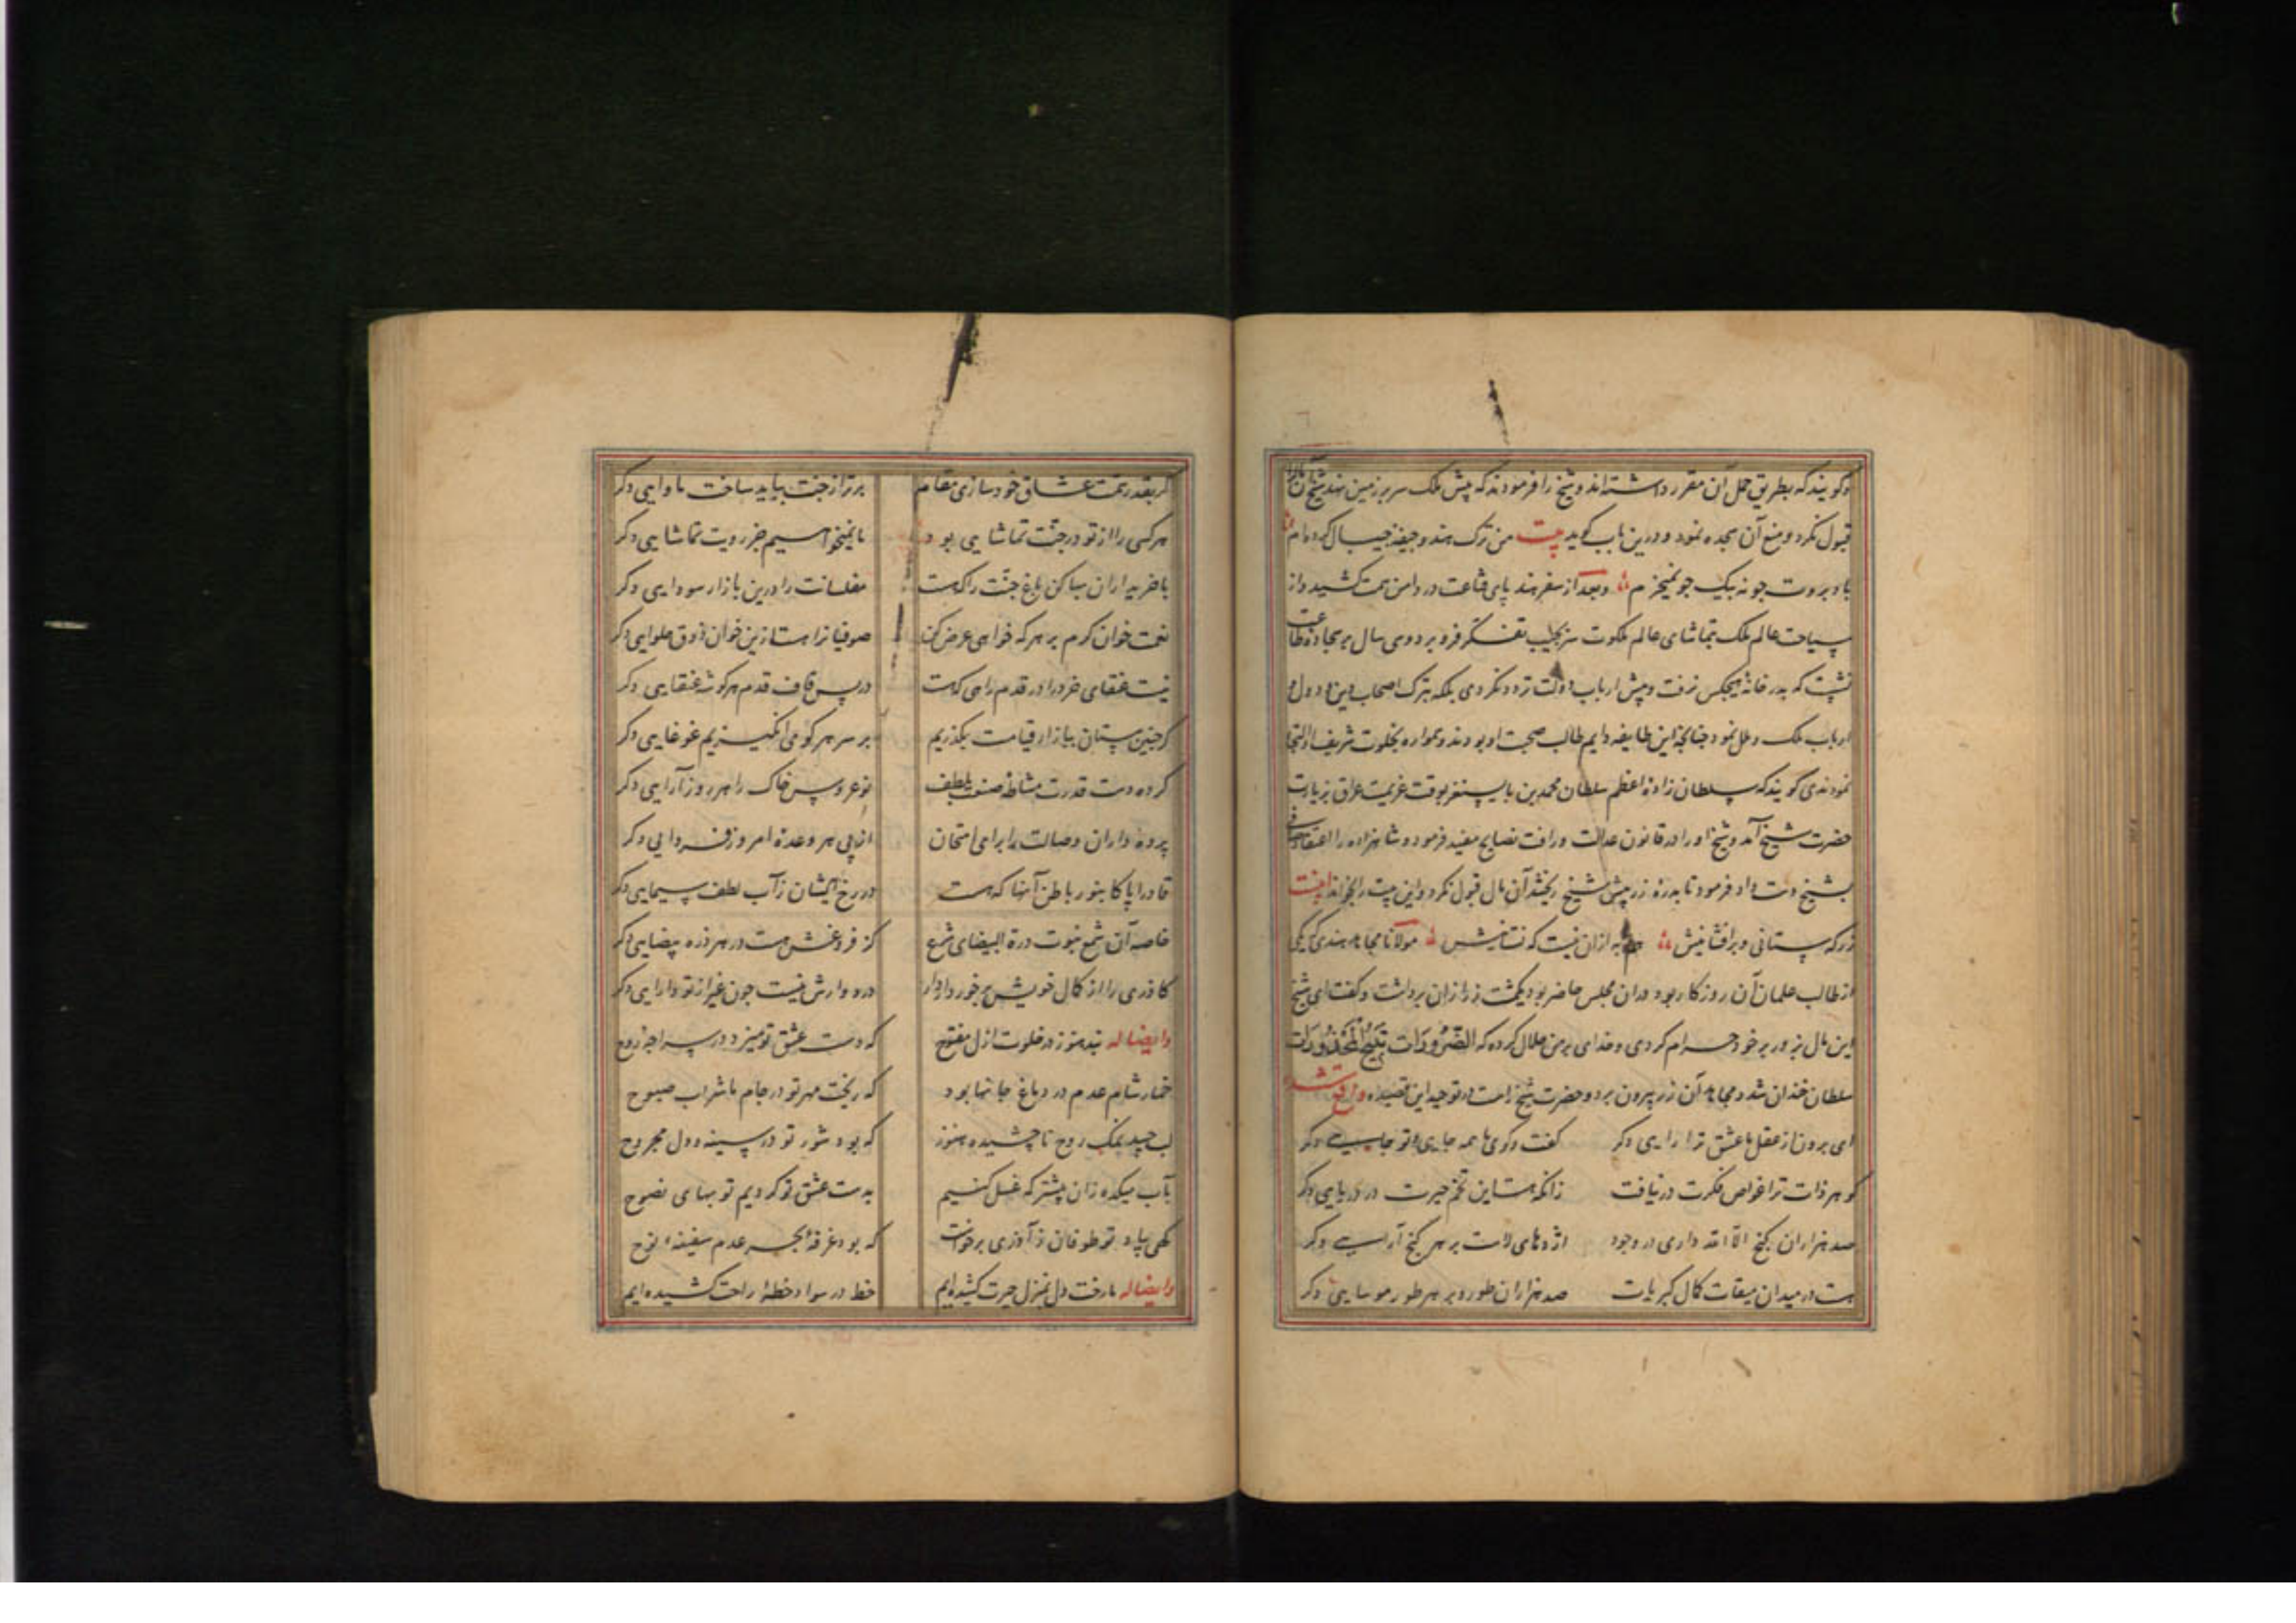 وکویند که بطریق حمل آن مقرر داشته‌اند و شیخ را فرمودند که پیش ملک سر بر زمین نهد شیخ آن
قبول نکرد و منع آن سجده نمود و درین باب کوید بیت من ترک هند و جیفه جیپال کرده‌ام
باد بروت جونه بیک جو نمیخرم و بعد از سفر هند پای قناعت در دامن همت کشید و از
سیاحت عالم ملک بتماشای عالم ملکوت سر بجیب تفکر فرو برد و سی سال بر سجاده طاعت
نشست که بدر خانه هیچکس نرفت و پیش ارباب دولت تردد نکردی بلکه بترک اصحاب دین و دول و
ارباب ملک و ملل نمود جنانجه این طایفه دایم طالب صحبت او بودند و همواره بخلوت شریف او التجا
نمودندی کویند که سلطان زاده اعظم سلطان محمد بن بایسنغر بوقت عزیمت عراق بزیارت
حضرت شیخ آمد و شیخ او را در قانون عدالت و رافت نصایح مفید فرمود و شاهزاده را اعتقاد صافی
بشیخ دست داد فرمود تا بدره زر پیش شیخ ریختند آن مال قبول نکرد و این بیت را بخواند بیت
زر که ستانی و برافشانیش به ازان نیست که نستانیش مولانا مجاهد هندی که یکی
از طالب علمان آن روزکار بود دران مجلس حاضر بود یکمشت زر ازان برداشت و کفت ای شیخ
این مال بزور بر خود حرام کردی و خدای بر من حلال کرده که الضرورات تبیح المحذورات
سلطان خندان شد و مجاهد آن زر بیرون برد و حضرت شیخ راست در توحید این قصیده
ای برون از عقل ما عشق ترا رایی دکر کفت وکوی ما همه جایی و تو جایی دکر
کوهر ذات ترا غواص فکرت در نیافت زانکه هست این تخم حیرت در دریایی دکر
صد هزاران کنج الا الله داری در وجود اژدهای لاست بر هر کنج آرایی دکر
هست در میدان میقات کمال کبریات صد هزاران طور و بر هر طور موسایی دکر
کر بقدر همت عشاق خود سازی مقام برتر از جنت بباید ساخت ماوایی دکر
هر کسی را از تو در جنت تماشایی بود ما نمیخواهیم جز رویت تماشایی دکر
با خریداران بیا کن باغ جنت را که هست مفلسانت را درین بازار سودایی دکر
نعمت خوان کرم بر هر که خواهی عرض کن صوفیانرا هست ازین خوان ذوق حلوایی دکر
نیست عنقای خرد را در قدم راهی که هست در پس قاف قدم هر کوشه عنقایی دکر
کر جنین مستان ببازار قیامت بکذریم بر سر هر کو می انکیزیم غوغایی دکر
کرده دست قدرت مشاطه صنعت بلطف نو عروس خاک را هر روز آرایی دکر
پرده داران وصالت را برای امتحان از پی هر وعده امروز فردایی دکر
قادرا پاکا بنور باطن آنها که هست در رخ ایشان ز آب لطف سیمایی دکر
خاصه آن شمع نبوت درة البیضای شمع کز فروغش هست در هر ذره بیضایی دکر
کاذری را از کمال خویش برخوردار دار در دو وارش نیست جون غیر از تو دارایی دکر
وایضا له نبد هنوز در خلوت ازل مفتوح که دست عشق تو میزد در سراجه روح
خمار شام عدم در دماغ جانها بود که ریخت مهر تو در جام ما شراب صبوح
لب جسد نمک روح ناچشیده هنوز که بود شور تو در سینه و دل مجروح
بآب میکده زان پیشتر که غسل کنیم بدست عشق تو کردیم توبهای نصوح
کهی بیاد تو طوفان ز آذری برخواست که بود غرقه بحر عدم سفینه نوح
وایضا له ما رخت دل بمنزل حیرت کشیده‌ایم خط در سواد خطه راحت کشیده‌ایم